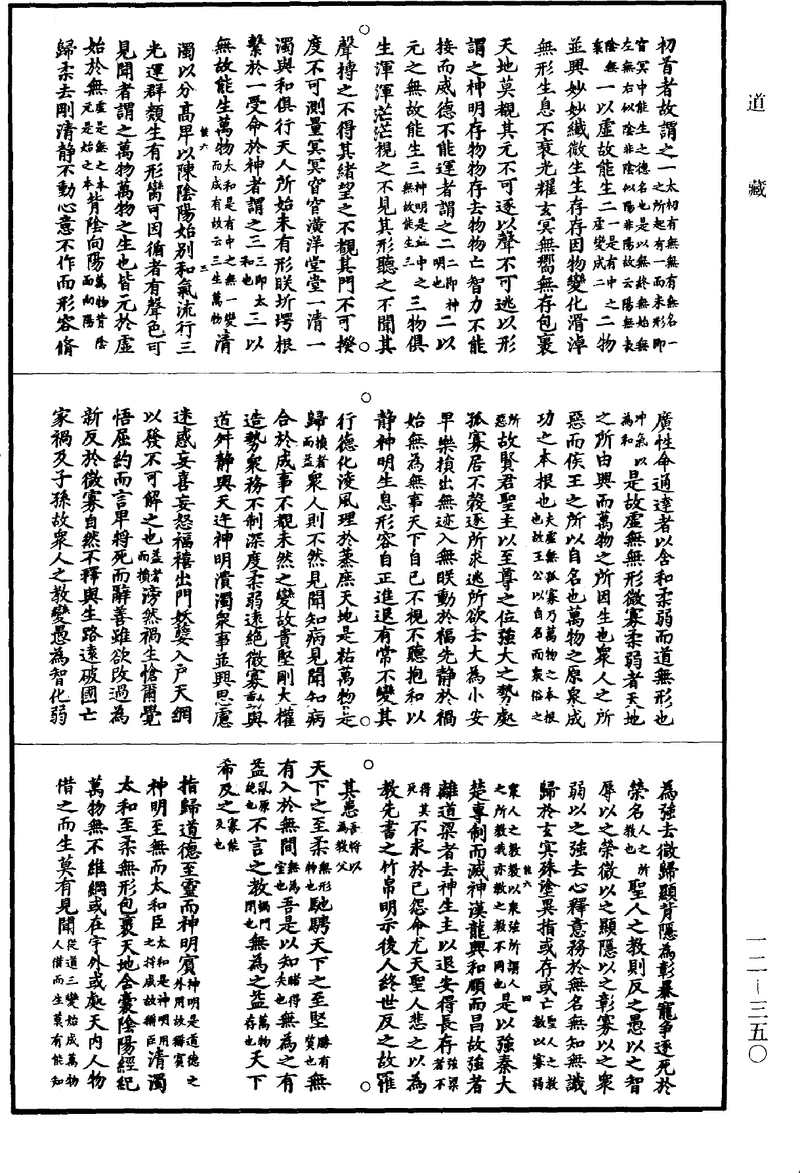 道藏
初首者故謂之一太初有無無有無名一之所起有一而未形即
窅冥中能生之德名也是以無終無始無左無右似陰非陰似陽非陽故云陽無表
陰無裏一以虛故能生二一是有中之虛變成二二物
並興妙妙纖微生生存存因物變化滑淖
無形生息不衰光耀玄冥無嚮無存包裹
天地莫覩其元不可逐以聲不可逃以形
謂之神明存物物存去物物亡智力不能
接而威德不能運者謂之二二即神明也二以
元之無故能生三神明是血中之無故能生三三物俱
生渾渾茫茫視之不見其形聽之不聞其
聲搏之不得其緒望之不覩其門不可揆
度不可測量冥冥窅窅潢洋堂堂一清一
濁與和俱行天人所始未有形眹圻堮根
繫於一受命於神者謂之三三即太和也三以
無故能生萬物太和是有中之無一變而成有故云三生萬物清
能六 三
濁以分高卑以陳陰陽始別和氣流行三
光運群類生有形臠可因循者有聲色可
見聞者謂之萬物萬物之生也皆元於虛
始於無虛是無之本無是始之本背陰向陽萬物背陰而向陽
歸柔去剛清静不動心意不作而形容脩
廣性命通達者以含和柔弱而道無形也
冲氣以為和是故虛無無形微寡柔弱者天地
之所由興而萬物之所因生也衆人之所
惡而侯王之所以自名也萬物之原泉成
功之本根也夫虛無孤寡乃萬物之本根也故王公以自名而衆俗之
所惡故賢君聖主以至尊之位強大之勢處
孤寡居不穀逐所求逃所欲去大為小安
卑樂損出無迹入無眹動於福先静於禍
始無為無事天下自已不視不聽抱和以
静神明生息形容自正進退有常不變其
行德化淩風理於蒸庶天地是祐萬物是
歸損者而益衆人則不然見聞知病見聞知病
合於成事不覩未然之變故貴堅剛大權
造勢衆務不制深度柔弱遠絶微寡以與
道舛静與天迕神明潰濁衆事並興思慮
迷惑妄喜妄怒福禧出門妖孼入户天網
以發不可解之也益者而損滂然禍生愴爾覺
悟屈約而言卑將死而辭善雖欲改過為
新反於微寡自然不釋與生路遠破國亡
家禍及子孫故衆人之教變愚為智化弱
為強去微歸顯背隱為彰暴寵争逐死於
榮名人之所教也聖人之教則反之愚以之智
辱以之榮微以之顯隱以之彰寡以之衆
弱以之強去心釋意務於無名無知無識
歸於玄冥殊塗異指或存或亡聖人之教教以寡弱
衆人之教教以衆強所謂人之所教我亦教之教不同也是以強秦大
能六 四
楚專制而滅神漢龍興和順而昌故強者
離道梁者去神生主以退安得長存強梁者不
得其死不求於已怨命尤天聖人悲之以為
教先書之竹帛明示後人終世反之故罹
其患吾將以為教父
天下之至柔無形神也馳騁天下之至堅勝有質也無
有入於無間無為空也吾是以知睹得失也無為之有
益亂原絶也不言之教禍門閉也無為之益萬物存也天下
希及之寡能及也
指歸道德至靈而神明賓神明是道德之外用故稱賓
神明至無而太和臣太和是神明用之持成故稱臣清濁
太和至柔無形包裹天地含囊陰陽經紀
萬物無不維綱或在宇外或處天内人物
借之而生莫有見聞從道三變始成萬物人借而生莫有能知
一二—三五〇